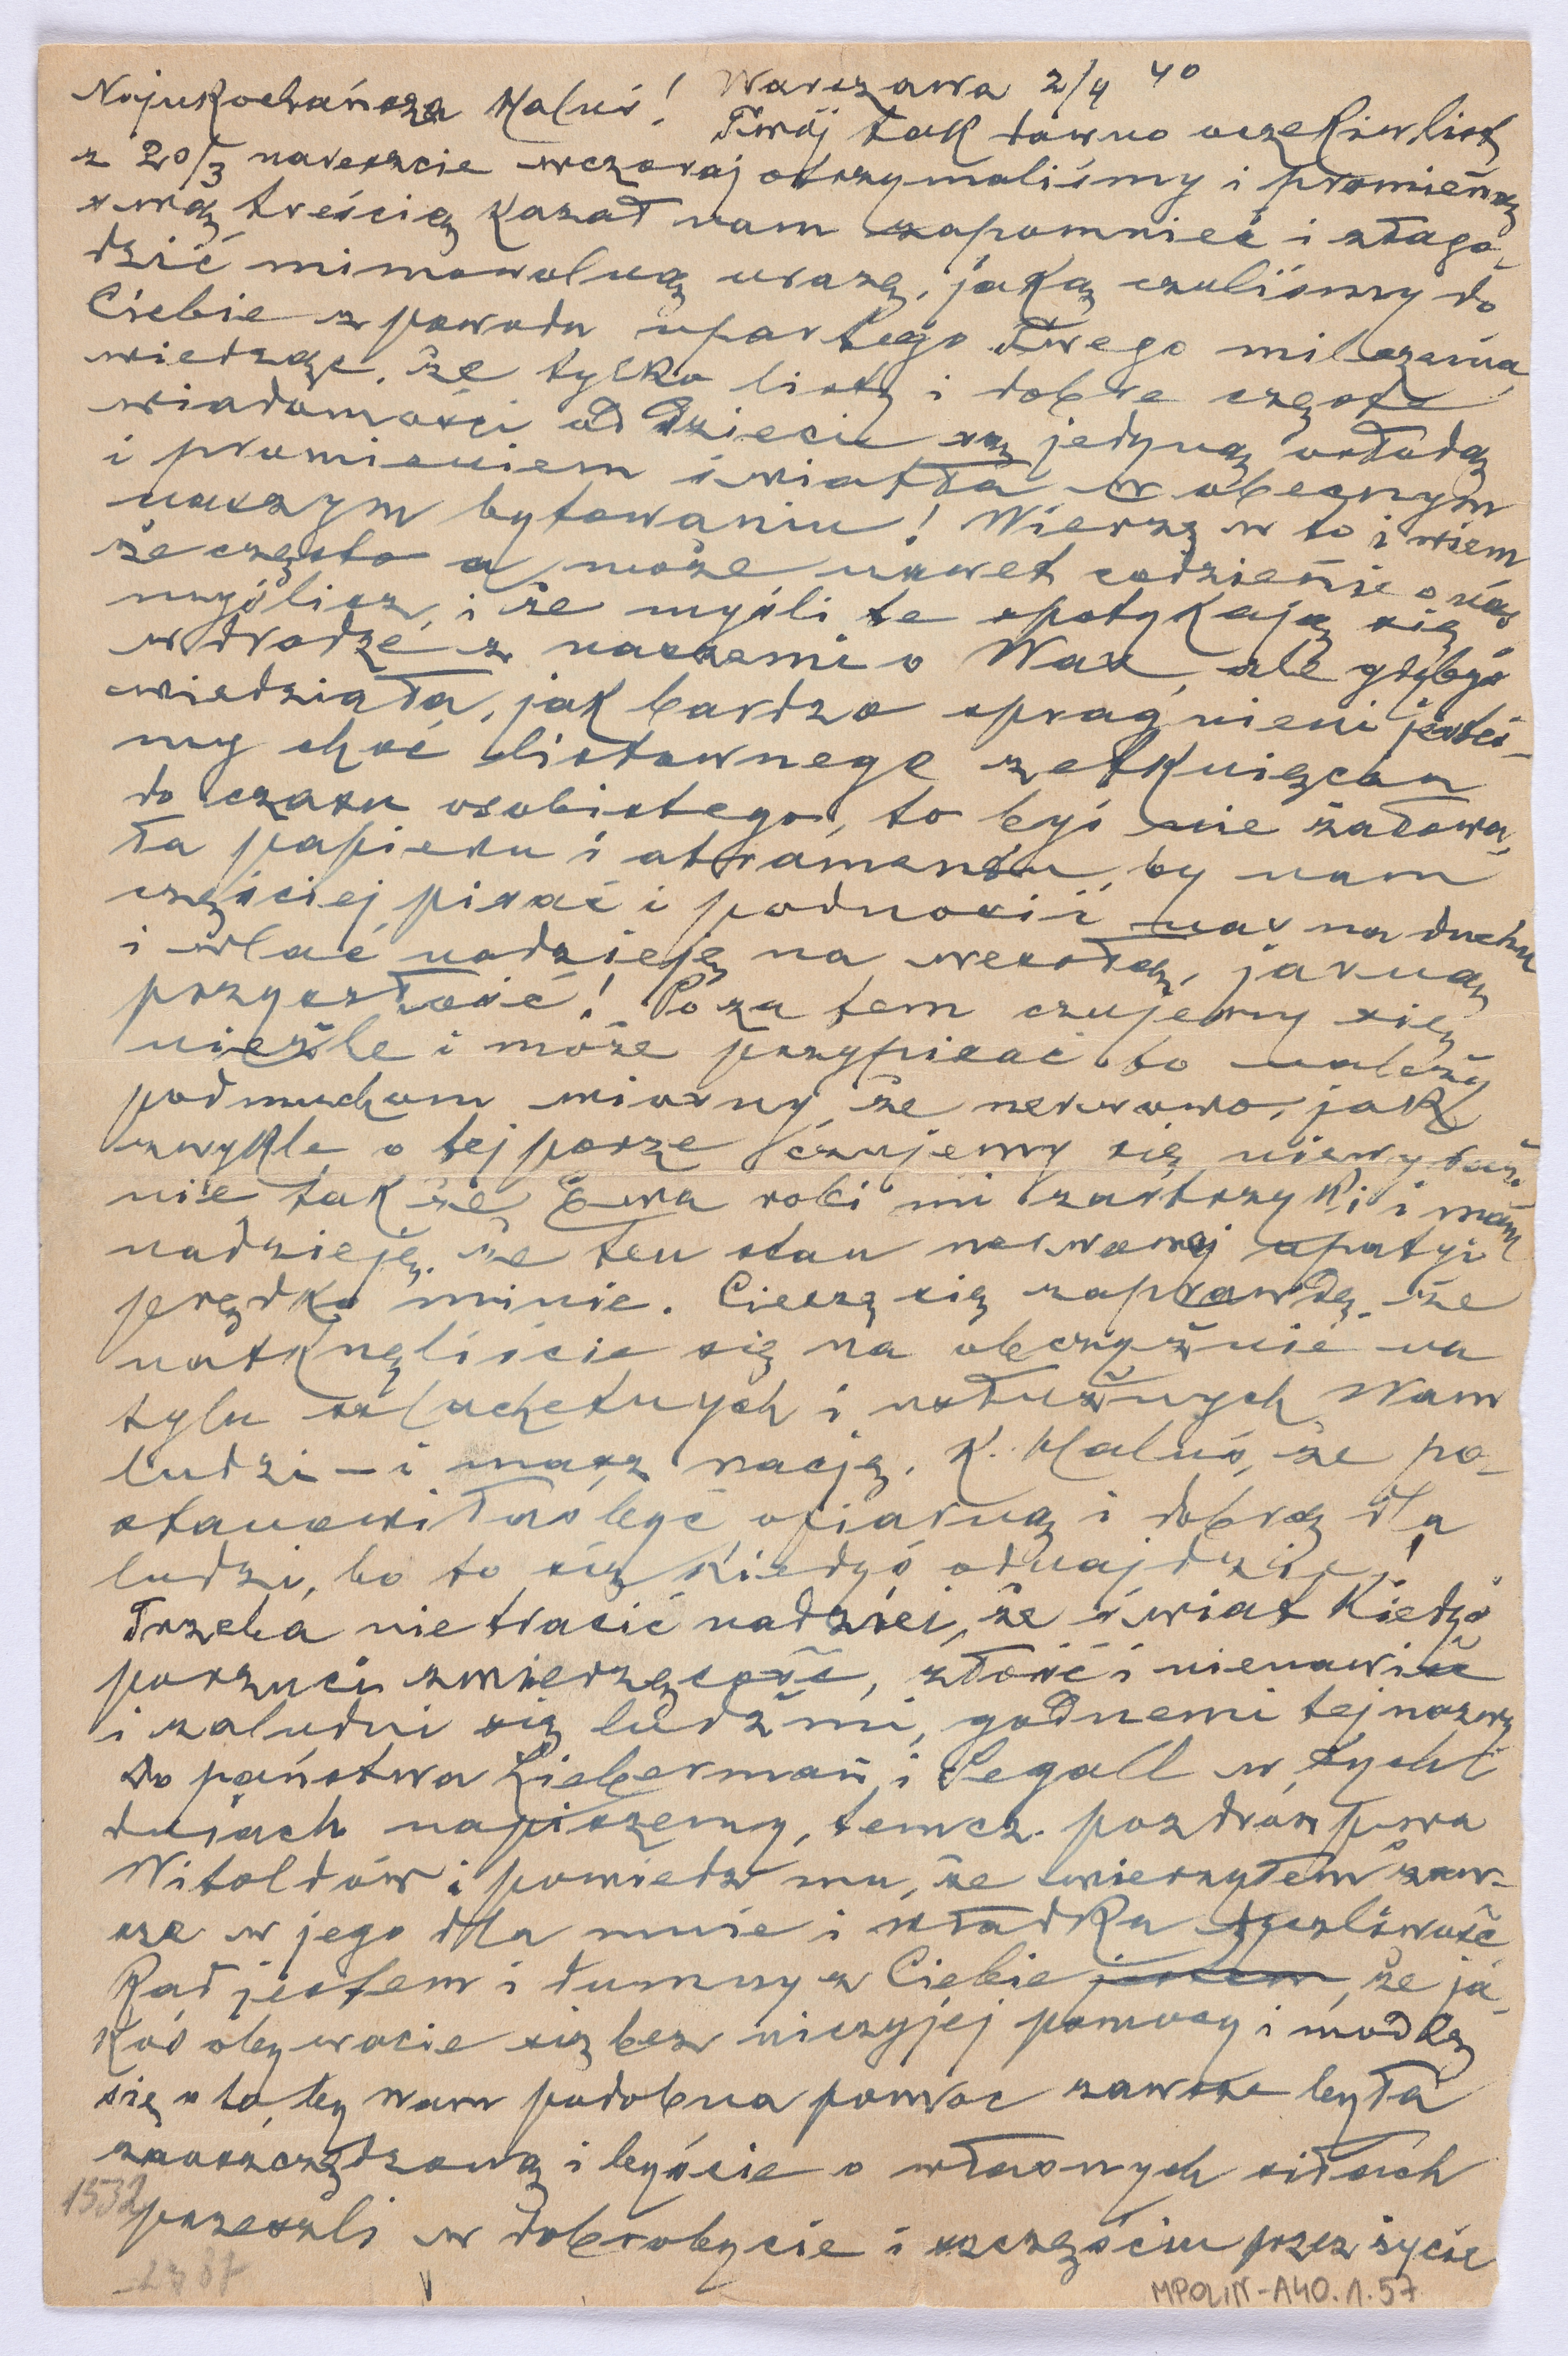 Najukochańsza Haluś! Warszawa 2/4 40
Twój tak dawno oczekiw list
z 20/3 nareszcie wczoraj otrzymaliśmy i promienną
swą treścią kazał nam zapomnieć i złago-
dzić mimowolną urazę, jaką czuliśmy do
Ciebie z powodu upartego Twego milczenia,
wiedząc, że tylko listy i dobre częste
wiadomości od Dzieci są jedyną osłodą
i promieniem światła w obecnym
naszym bytowaniu! Wierzę w to i wiem
że często a może nawet codzieńie o nas
myślisz, i że myśli te spotykają się
w drodze z naszemi o Was, ale gdybyś
wiedziała, jak bardzo spragnieni jesteś-
my choć listownego zetknięcia
do czasu osobistego, to byś nie żałowa-
ła papieru i atramentu, by nam
częściej pisać i podnosić nas na duchu
i wlać nadzieję na wesołą, jasną
przyszłość! Poza tem czujemy się
nieźle i może przypisać to należy
podmuchom wiosny, że nerwowo, jak
zwykle o tej porze czujemy się niewyraź-
nie tak że Ewa robi mi zastrzyki i mam
nadzieję, że ten stan nerwowej apatyi
prędko minie. Cieszę się zaprawdę, że
natknęliście się na obczyźnie na
tylu szlachetnych i usłużnych Wam
ludzi – i masz rację, K. Haluś, że po-
stanowiłaś być ofiarną i dobrą dla
ludzi, bo to się kiedyś odnajdzie!
Trzeba nie tracić nadziei, że świat kiedyś
porzuci zwierzęcość, złość i nienawiść
i zaludni się ludźmi, godnemi tej nazwy
do państwa Lieberman i Segall w tych
dniach napiszemy, temcz. pozdrów pwa
Witoldów i powiedz mu, że wierzyłem zaw-
sze w jego dla mnie i Władka życzliwość
Rad jestem i dumny z Ciebie jestem, że ja-
koś obywacie się bez niczyjej pomocy i modlę
się o to, by Wam podobna pomoc zawsze była
zaoszczędzoną i byście o własnych siłach
przeszli w dobrobycie i szczęściu przez życie
1532
MPOLIN-A40.1.57